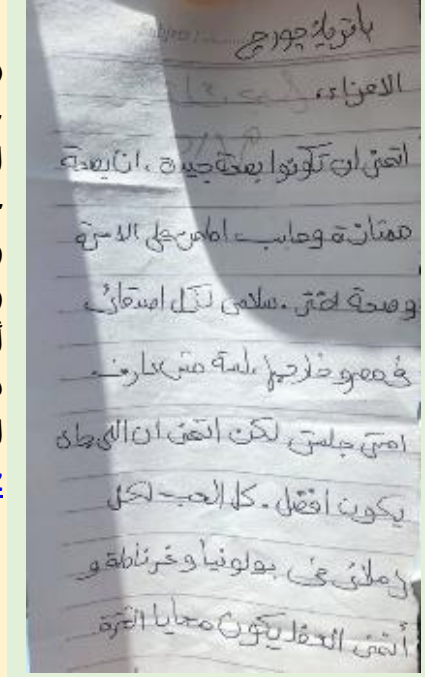 باتريك چورچ
الاعزاء،
اتمنى ان تكونوا بصحة جيدة. انا بصحة
ممتازة وحابب اطمن على الاسرة
وصحة اختي. سلامي لكل اصدقائي
في مصر وخارجها، لسة مش عارف
امتى جلستي لكن اتمنى ان اللي جاي
يكون افضل. كل الحب لكل
زملائي في بولونيا وغرناطة و
أتمنى العقل يكون معايا الفترة